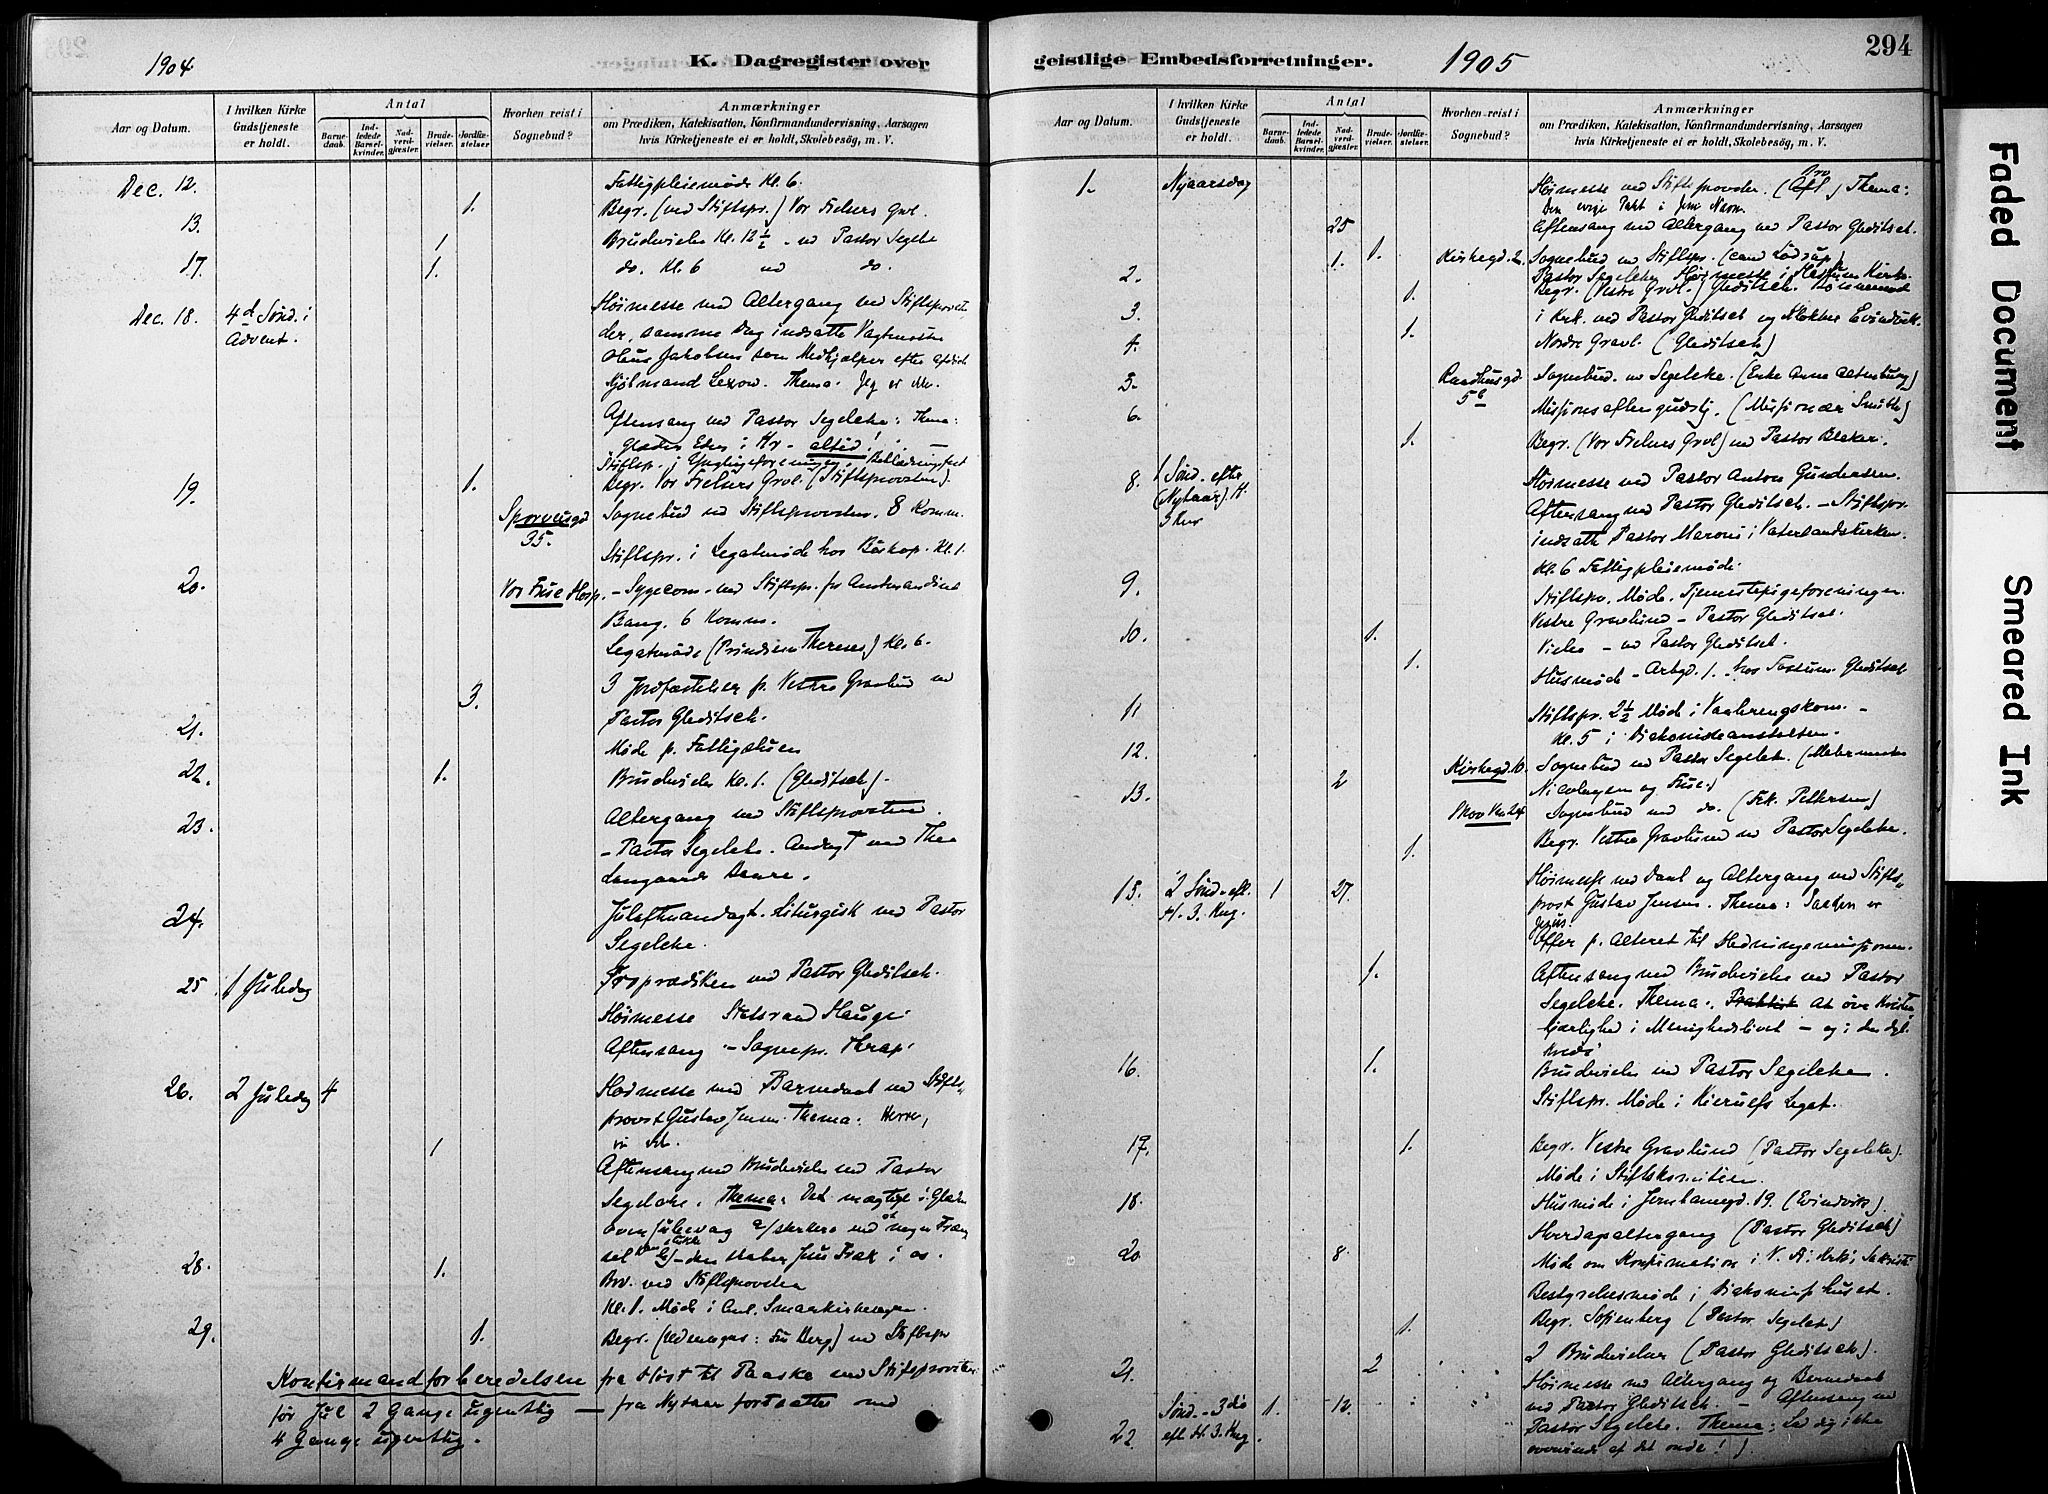 1904
K. Dagregister over
Aar og Datum.
I hvilken Kirke Gudstjeneste er holdt.
Antal
Barnedaab.
Indledede Barselkvinder.
Nadverdgjæster.
Brudevielser.
Jordfæstelser
Hvorhen reist i Sognebud?
Anmærkninger
om Prædiken, Katekisation, Konfirmandundervisning, Aarsagen
hvis Kirketjeneste ei er holdt, Skolebesøg, m. V.
Dec. 12. Fattigpleiemøde Kl. 6.
1. Begr. (ved Stiftspr.) Vor Frelsers Grvl.
13. 1 Brudevielse Kl. 12 ½ ved Pastor Segelcke
17. 1. do. Kl. 6 ved do.
Dec. 18. 4d Sønd. i Advent. Høimesse med Altergang ved Stiftsprovsten
der, samme Dag indsatte Vagtmester
Olaus Jakobsen som Medhjælper efter
Lexow. Thema: Jeg er ikke.
Aftensang ved Pastor Segelcke: Thema:
Glæder Eder i Hr - altid!
Stiftspr. i Ynglingeforeningen
19. 1. Begr. Vor Frelsers Grvl. (Stiftsprovsten).
Sporveisgd 35. Sognebud ved Stiftsprovsten. 8 Komm.
Stiftspr. i Legatmøde hos Biskop. Kl. 1.
20. Vor Frue Hosp. - Sygecom. ved Stiftspr. for
Bang. 6 Komm.
Legatmøde (Prindsesse Thereses) Kl. 6.
3. 3 Jordfæstelser p. Vestre Gravlund ved
Pastor Gleditsch.
21. Møde p. Fattighusen
22. 1. Brudevielse Kl. 1. (Gleditsch).
23. Altergang ved Stiftsprovsten.
- Pastor Segelcke. Andagt ved Thea
Langaards Baare.
24. Juleftenandagt. Liturgisk ved Pastor
Segelcke.
25. 1 Juledag Froprædiken ved Pastor Gleditsch.
Høimesse Statsraad Hauge
Aftensang - Sognepr. Thrap.
26. 2 Juledag 4 Høimesse med Barnedaab ved Stifts-
provst Gustav Jensen. Thema: Herre,
1 Aftensang med Brudevielse ved Pastor
Segelcke. Thema: Det mægtige i Glæden
over
28. 1. Brv. ved Stiftsprovsten
Kl. 1. Møde i Smaakirkesagen.
29. 1. Begr. ved Stiftspr
Konfirmandforberedelsen fra Høst til Paaske ved Stiftsprovsten
før Jul 2 Gange ugentlig - fra Nytaar fortsattes med
4 Gange ugentlig.
geistlige Embedsforretninger.
1905
294
Aar og Datum.
I hvilken Kirke Gudstjeneste er holdt.
Antal
Barnedaab.
Indledede Barselkvinder.
Nadverdgjæster.
Brudevielser.
Jordfæstelser.
Hvorhen reist i Sognebud?
Anmærkninger
om Prædiken, Katekisation, Konfirmandundervisning, Aarsagen
hvis Kirketjeneste ei er holdt, Skolebesøg, m. V.
1. Nyaarsdag Høimesse ved Stiftsprovsten. Thema:
Den evige Pakt i Jesu Navn.
25 Aftensang med Altergang ved Pastor Gleditsch.
1. 1. Kirkegd. 2. Sognebud ved Stiftspr. (cand Lødrup)
2. Pastor Segelcke Høimesse i Kirke
1. Begr. (Vestre Grvl.) Gleditsch.
3. i Krk. ved Pastor Gleditsch og Klokker Evindvik.
4. 1. Nordre Gravl. (Gleditsch)
5. Raadhusgd 5b Sognebud. ved Segelcke. (Enke Anne Altenburg)
6. Missionsaftengudstj. (Missionær Smith)
1. Begr. (Vor Frelsers Grvl) ved Pastor Bleker.
8. 1 Sønd. efter (Nytaar) H. 3 Kgr Høimesse ved Pastor Anton Gundersen.
Aftensang ved Pastor Gleditsch. - Stiftspr.
indsatte Pastor Maroni i Vaterlandskirken.
Kl. 6 Fattigpleiemøde.
9. Stiftspr. Møde. Tjenestepigeforeningen.
Vestre Gravlund - Pastor Gleditsch.
10. 1. Vielse - ved Pastor Gleditsch.
1. Husmøde - Arbgd. 1. hos Gleditsch
11 Stiftspr. 2 ½ Møde i Vaalerengskom. -
Kl. 5 i Diakonisseanstalten.
12. Kirkegd. 10. 2 Sognebud ved Pastor Segelck. (Malermester
13. Nicolaysen og Frue.)
Skov 24 Sognebud ved do. (Frk. Pettersen)
1. Begr. Vestre Gravlund ved Pastor Segelcke.
15. 2 Sønd. eft. H. 3. Kng. 1 27. Høimesse med Daab og Altergang ved Stifts-
provst Gustav Jensen. Thema: er
Jesus.
Offer p. Alteret til Hedningemissionen.
1. Aftensang med Brudevielse ved Pastor
Segelcke. Thema: At øve Kristen
kjærlighed i Menighedslivet -
16. 1. Brudevielse ved Pastor Segelcke.
Stiftspr. Møde i Kierulfs Legat.
17. 1. Begr. Vestre Gravlund (Pastor Segelcke).
Møde i Stiftskomiteen.
18. Husmøde i Jernbanegd. 19. (Evindvik).
Hverdagsaltergang (Pastor Gleditsch)
20. 8. Møde om Konfirmation i V. Fr. Kirkes Sakristi
Bestyrelsesmøde i Diakonissehuset.
1. Begr. Sofienberg (Pastor Segelck)
21. 2 2 Brudevielser (Pastor Gleditsch).
22 Sønd. - 3die eft H. 3. Kng. 1. 12. Høimesse med Altergang og Barnedaab
ved Pastor Gleditsch. - Aftensang ved
Pastor Segelcke. Thema: Lad dig ikke
overvinde af det onde!).
Faded Document
Smeared Ink